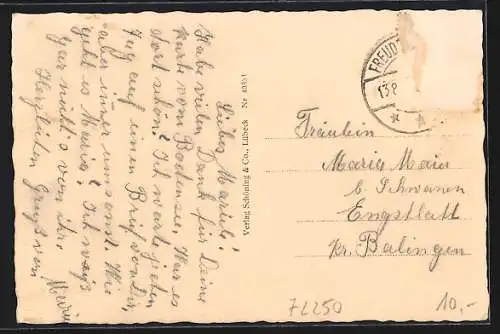 Liebes Mariele!
Habe vielen Dank für Deine
Karte vom Bodensee. War es
dort schön? Ich warte jeden
Tag auf einen Brief von Dir,
aber immer umsonst. Wie
geht es Maria? Ich weiß
gar nichts von ihr.
Herzlichen Gruß von
Verlag Schöning & Co., Lübeck Nr
FREUD
13.8
Fräulein
Maria Maier
b. Schwanen
Engstlatt
Kr. Balingen
72250
10.-